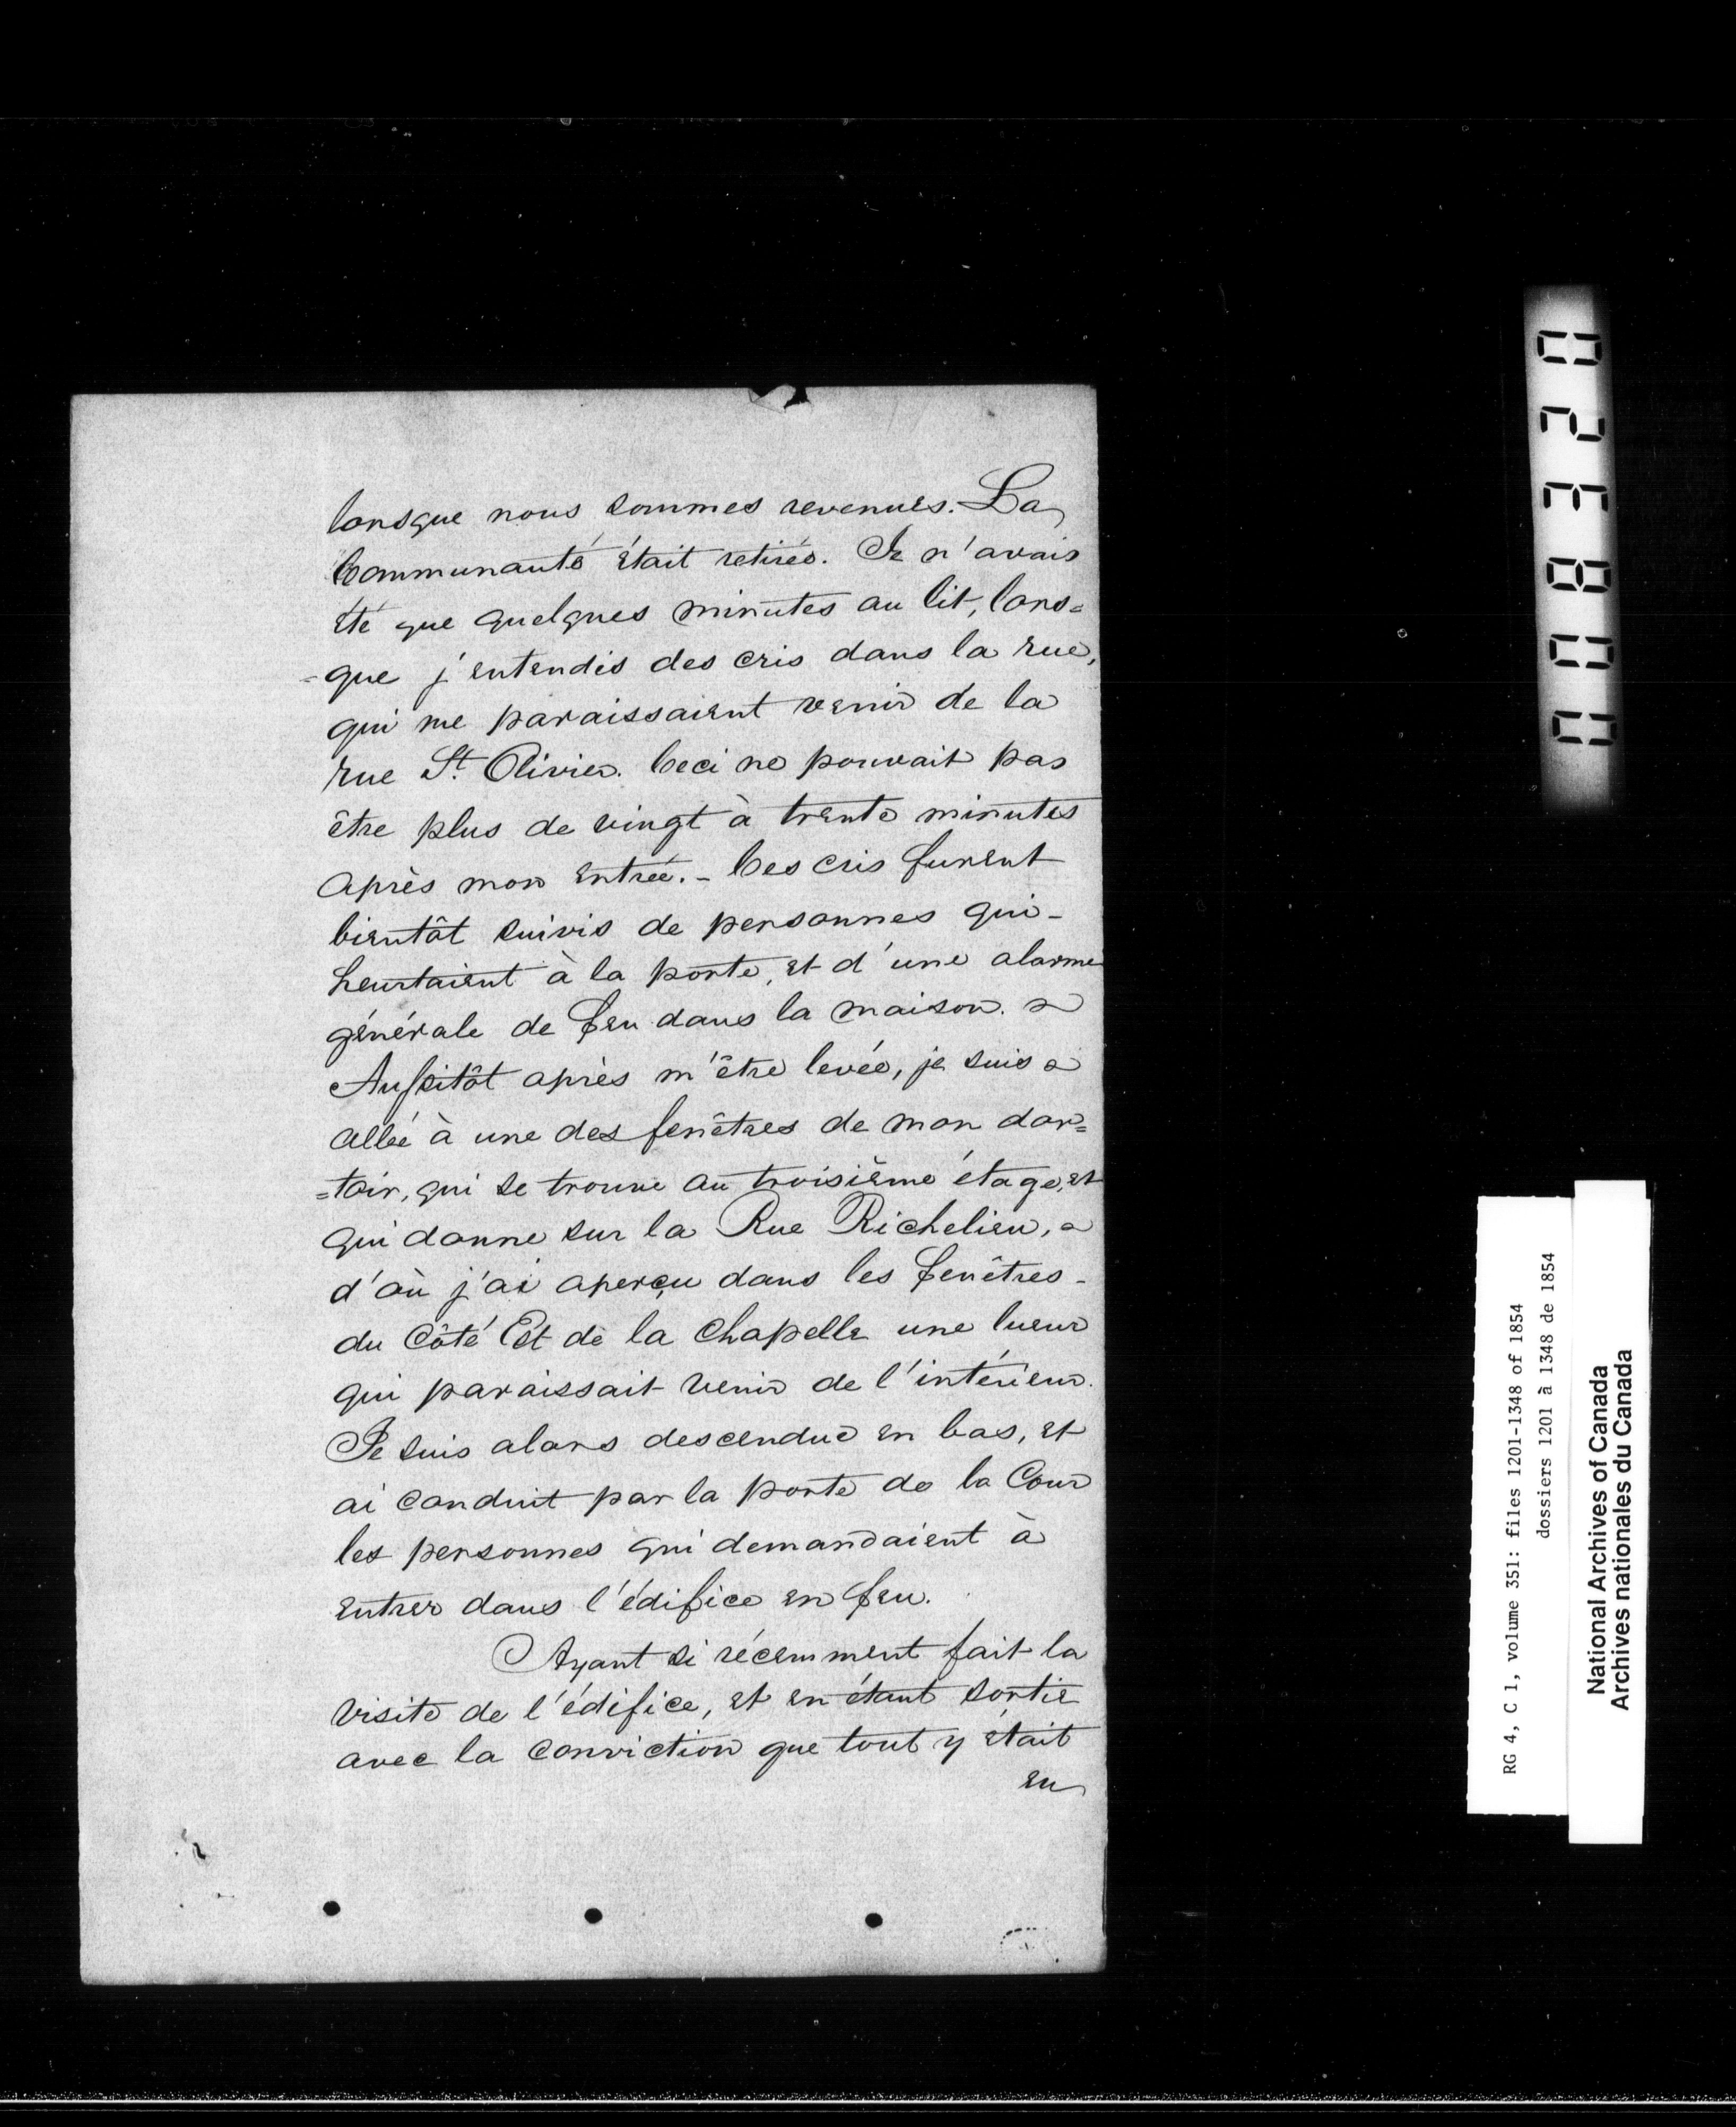 lorsque nous sommes revenues. La
Communauté était retirée. Je n'avais
été que quelques minutes au lit, lors=
-que j'entendis des cris dans la rue,
qui me paraissaient venir de la
rue St. Olivier. Ceci ne pouvait pas
être plus de vingt à trente minutes
après mon entrée. - Ces cris furent
bientôt suivis de personnes qui -
heurtaient à la porte, et d'une alarme
générale de feu dans la maison.
Aussitôt après m'être levée, je suis
allée à une des fenêtres de mon dor=
=toir, qui se trouve au troisième étage, et
qui donne sur la Rue Richelieu,
d'où j'ai aperçu dans les fenêtres -
du Côté Est de la Chapelle une lueur
qui paraissait venir de l'intérieur.
Je suis alors descendue en bas, et
ai conduit par la porte de la Cour
les personnes qui demandaient à
entrer dans l'édifice en feu.
Ayant si récemment fait la
visite de l'édifice, et en étant sortie
avec la conviction que tout y était
en
023800
RG 4, C 1, volume 351: files 1201-1348 of 1854
dossiers 1201 à 1348 de 1854
National Archives of Canada
Archives nationales du Canada